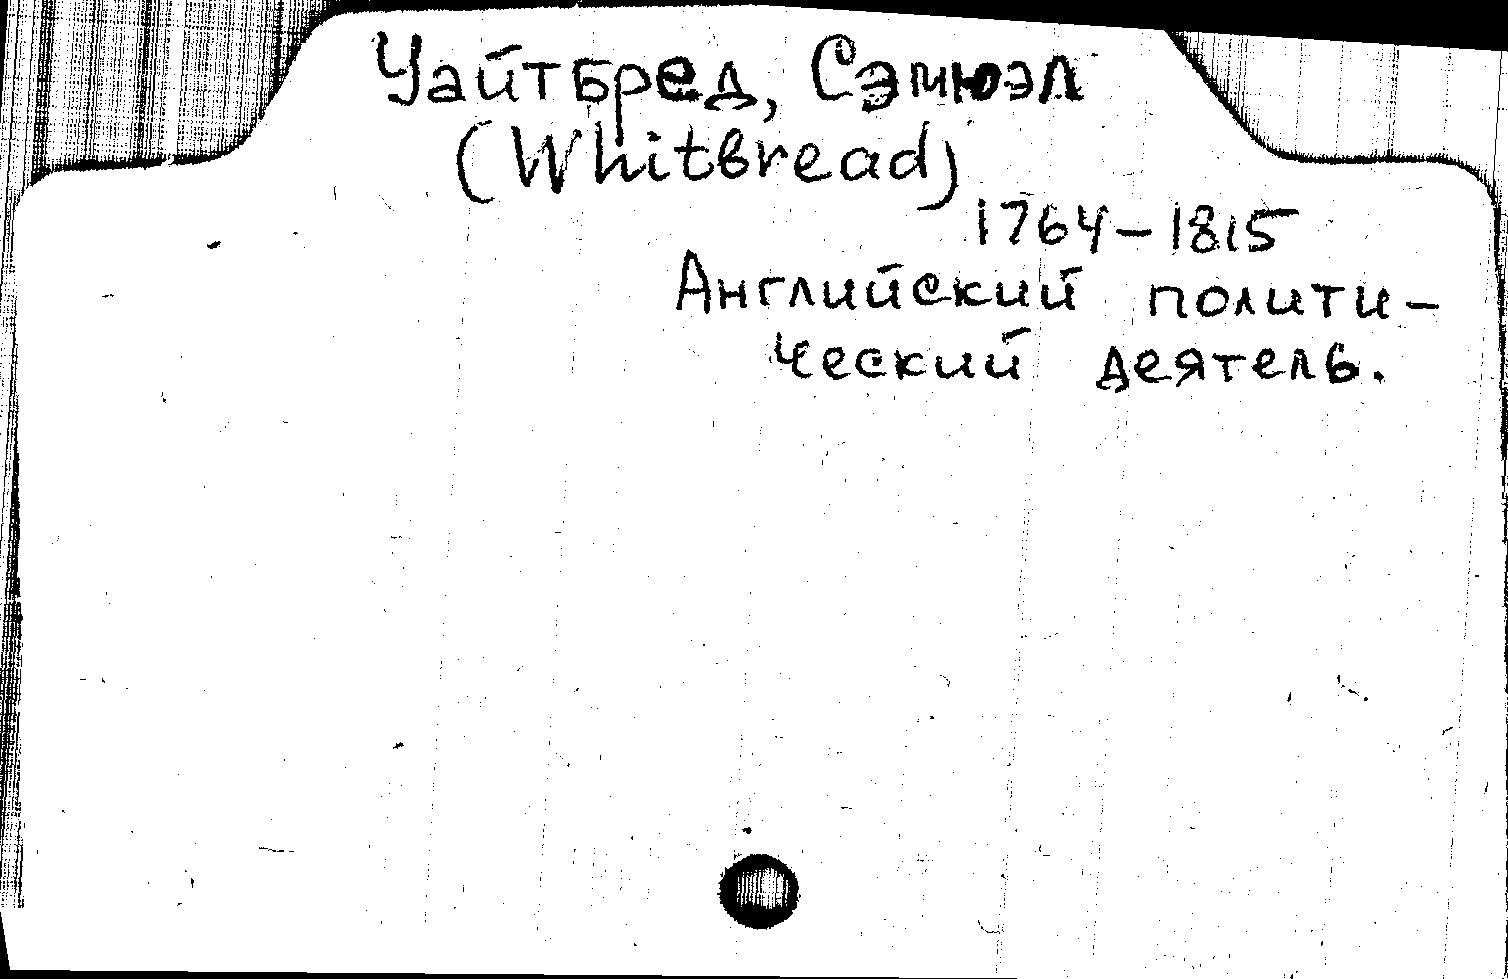 Уайтбред, Сэмюэл
(Whitbread)
1764-1815
Английский полити-
ческий деятель.